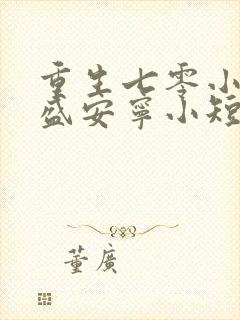 重生七零小
盛安宁小短
董广